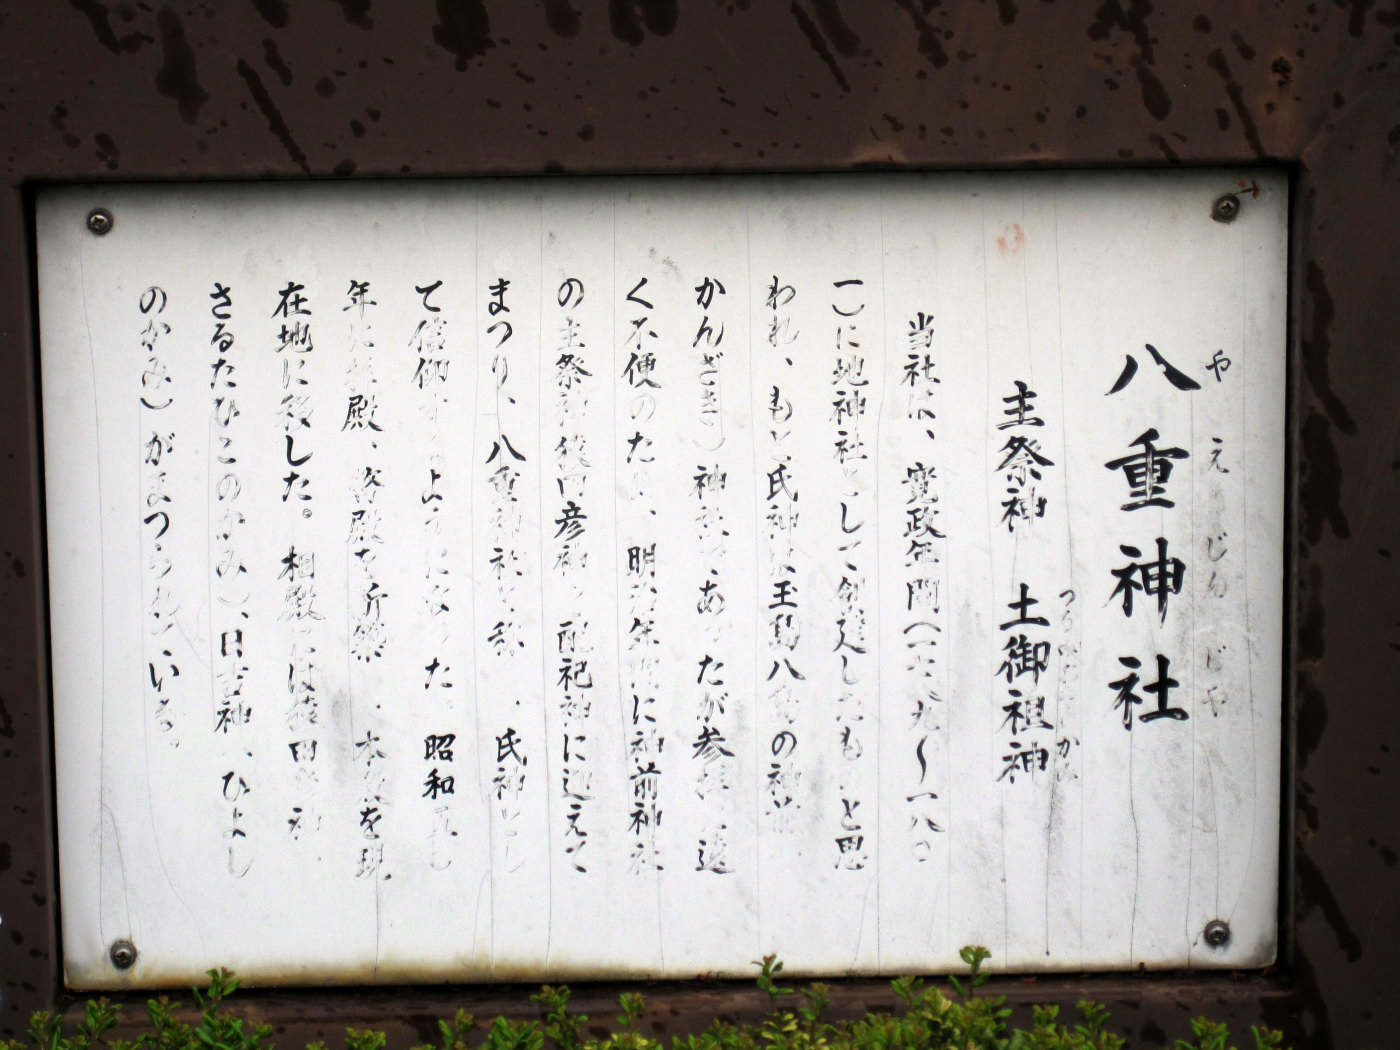 八重神社
やえ じん じや
主祭神 土御祖神
つち かみ
当社は、寛政年間(一七八九〜一八〇
一)に地神社として創建したものと思
われ、もと氏神は玉島八島の神前
かんざき)神社であったが参拝 遠
く不便のため、明治年間に神前神社
の主祭神猿田彦神を配祀神に迎えて
まつり、八重神社と称 、氏神とし
て信仰するようになった。昭和五
年に拝殿、 殿を新築 、本殿を現
在地に移した。相殿には猿田彦神
さるたひこのかみ)、日吉神 ひよし
のかみ)がまつられている。